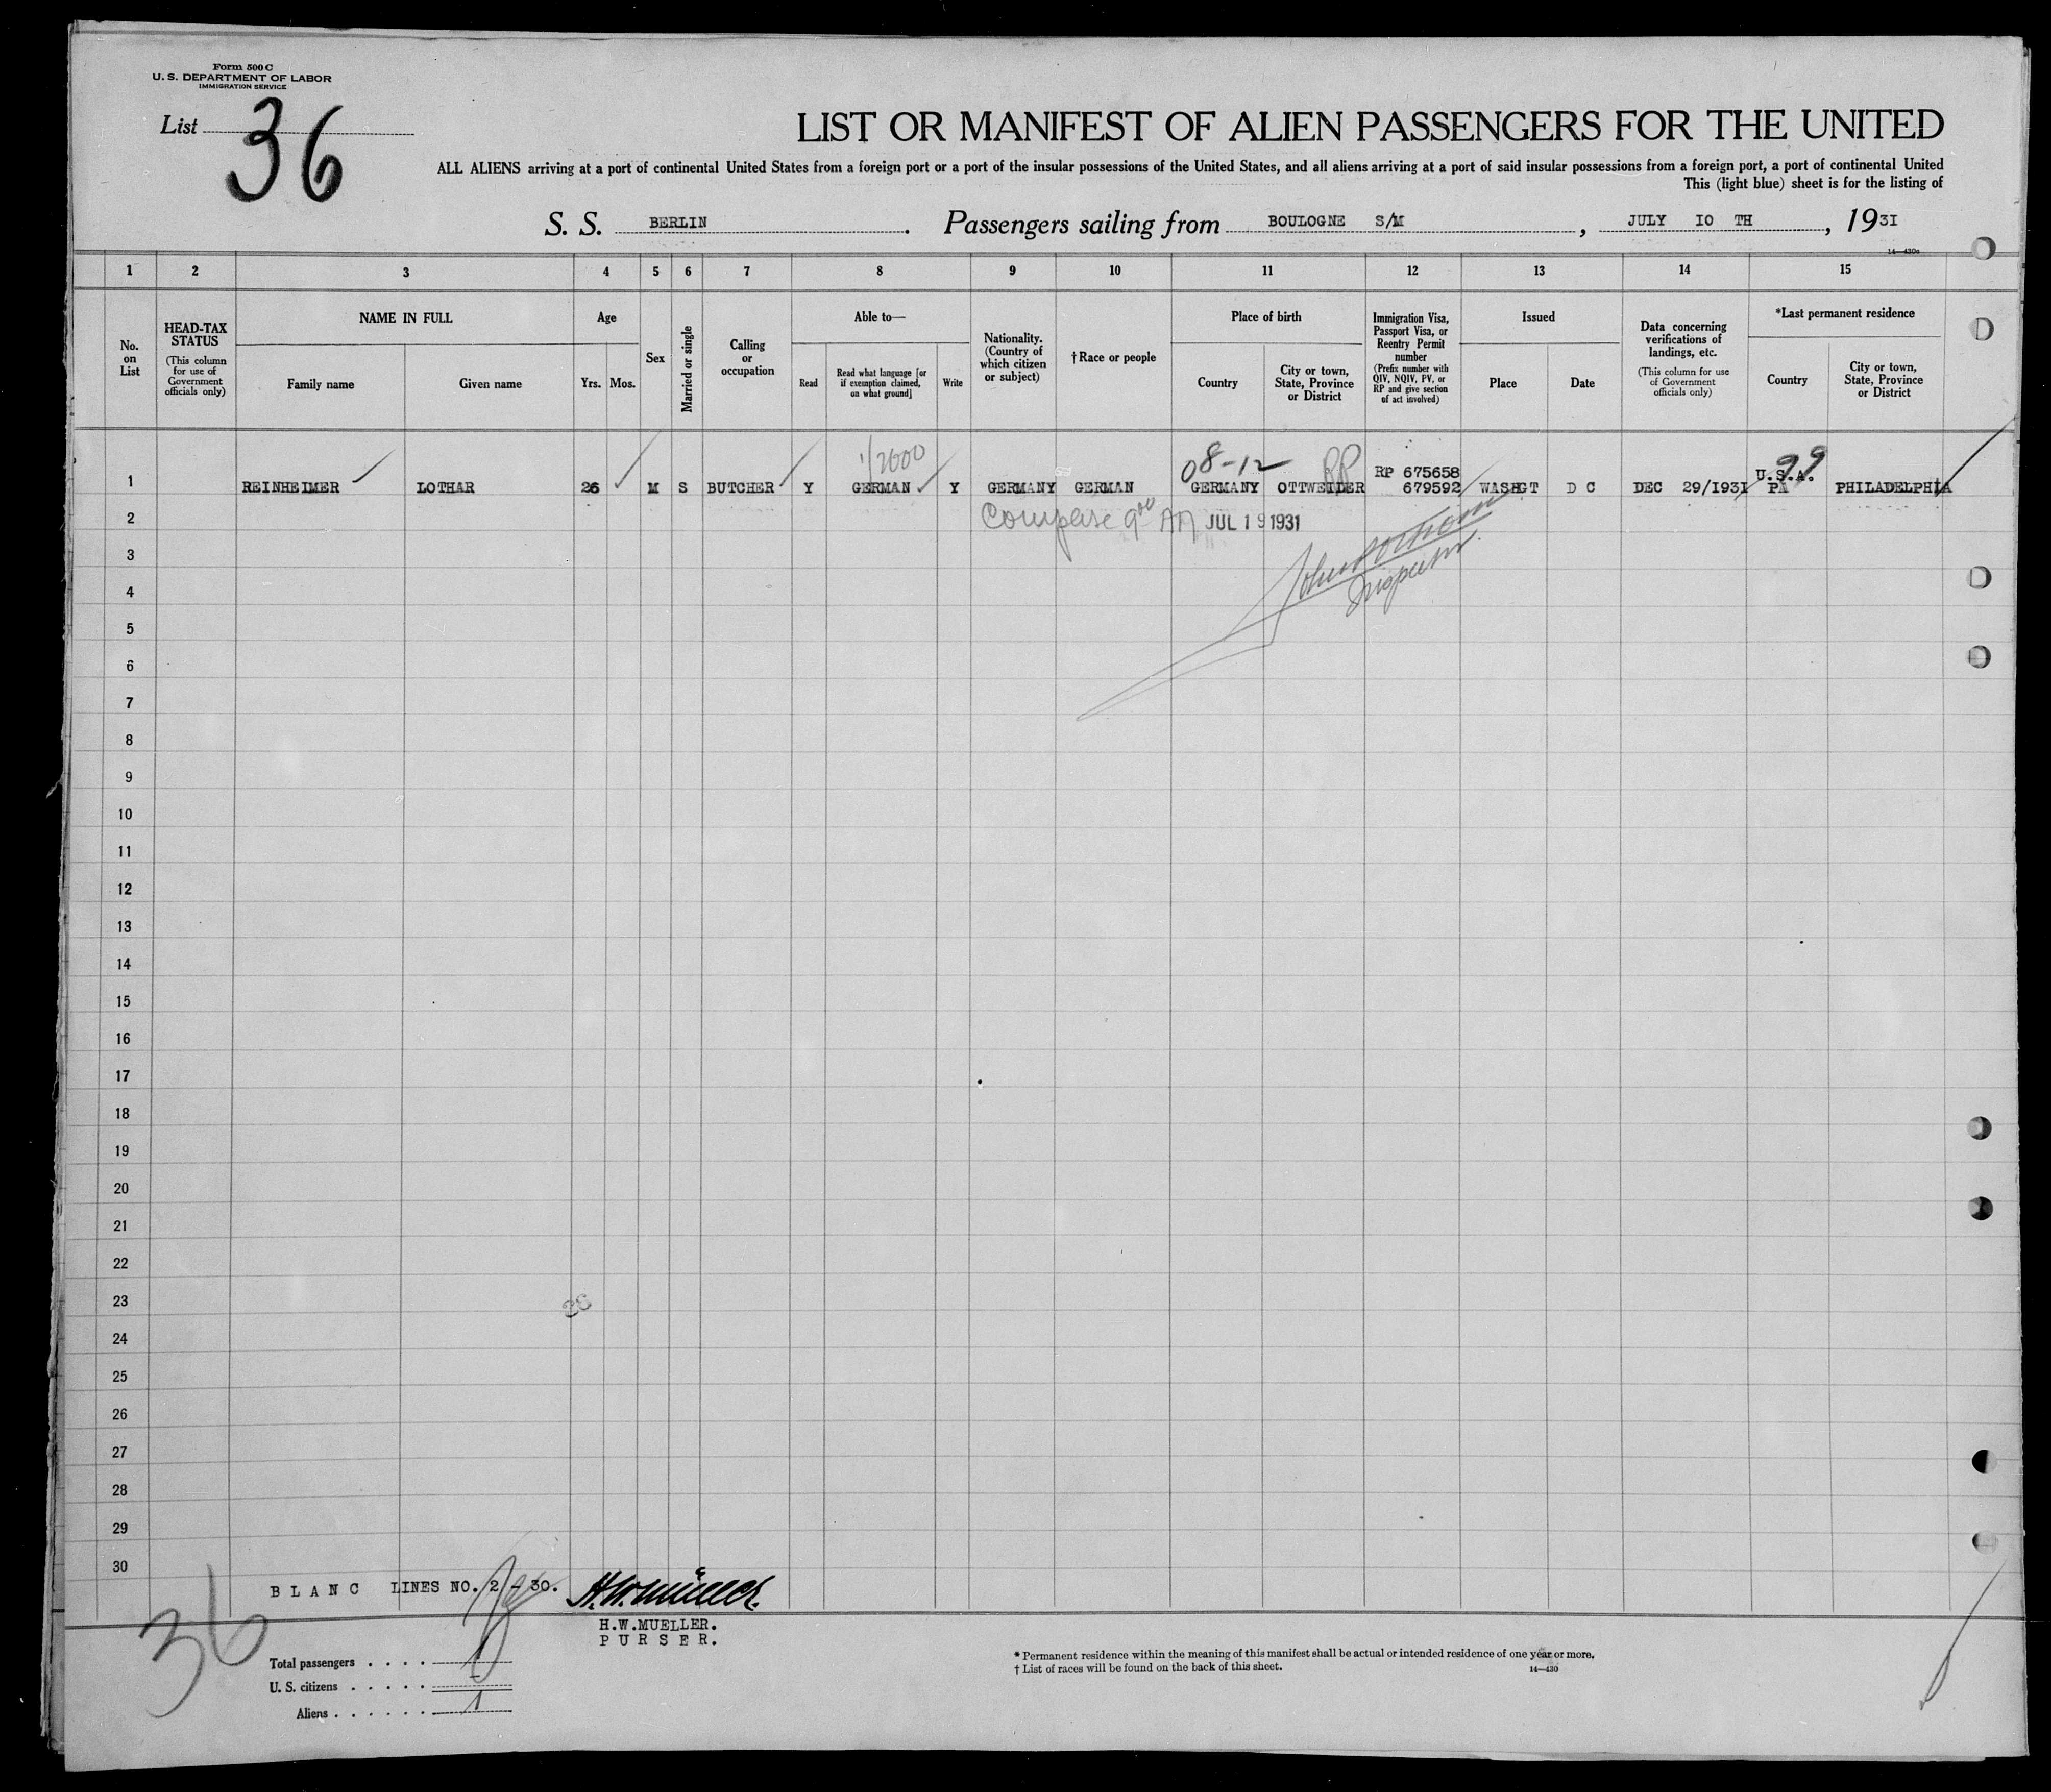 Form 500 C
U. S. DEPARTMENT OF LABOR
IMMIGRATION SERVICE
List 36
LIST OR MANIFEST OF ALIEN PASSENGERS FOR THE UNITED
ALL ALIENS arriving at a port of continental United States from a foreign port or a port of the insular possessions of the United States, and all aliens arriving at a port of said insular possessions from a foreign port, a port of continental United
This (light blue) sheet is for the listing of
S. S. BERLIN . Passengers sailing from BOULOGNE S/M , JULY 10 TH , 1931
14—430a
1 2 3 4 5 6 7 8 9 10 11 12 13 14 15
No. on List
HEAD-TAX STATUS (This column for use of Government officials only)
NAME IN FULL
Family name
Given name
Age
Yrs. Mos.
Sex
Married or single
Calling or occupation
Able to—
Read
Read what language [or if exemption claimed, on what ground]
Write
Nationality. (Country of which citizen or subject)
†Race or people
Place of birth
Country
City or town, State, Province or District
Immigration Visa, Passport Visa, or Reentry Permit number (Prefix number with QIV, NQIV, PV, or RP and give section of act involved)
Issued
Place
Date
Data concerning verifications of landings, etc. (This column for use of Government officials only)
*Last permanent residence
Country
City or town, State, Province or District
1/2600 08-12 RP RP 675658 U.S.A. 99
1 REINHEIMER LOTHAR 26 M S BUTCHER Y GERMAN Y GERMANY GERMAN GERMANY OTTWEILDER 679592 WASHGT D C DEC 29/1931 PA PHILADELPHIA
2 JUL 19 1931
3 Inspector
4
5
6
7
8
9
10
11
12
13
14
15
16
17
18
19
20
21
22
23
24
25
26
27
28
29
30
BLANC LINES NO. 2 - 30. H.W.Müller.
H.W.MUELLER.
PURSER.
36
Total passengers . . . . 1
U. S. citizens . . . . .
Aliens . . . . . . 1
* Permanent residence within the meaning of this manifest shall be actual or intended residence of one year or more.
† List of races will be found on the back of this sheet.
14—430